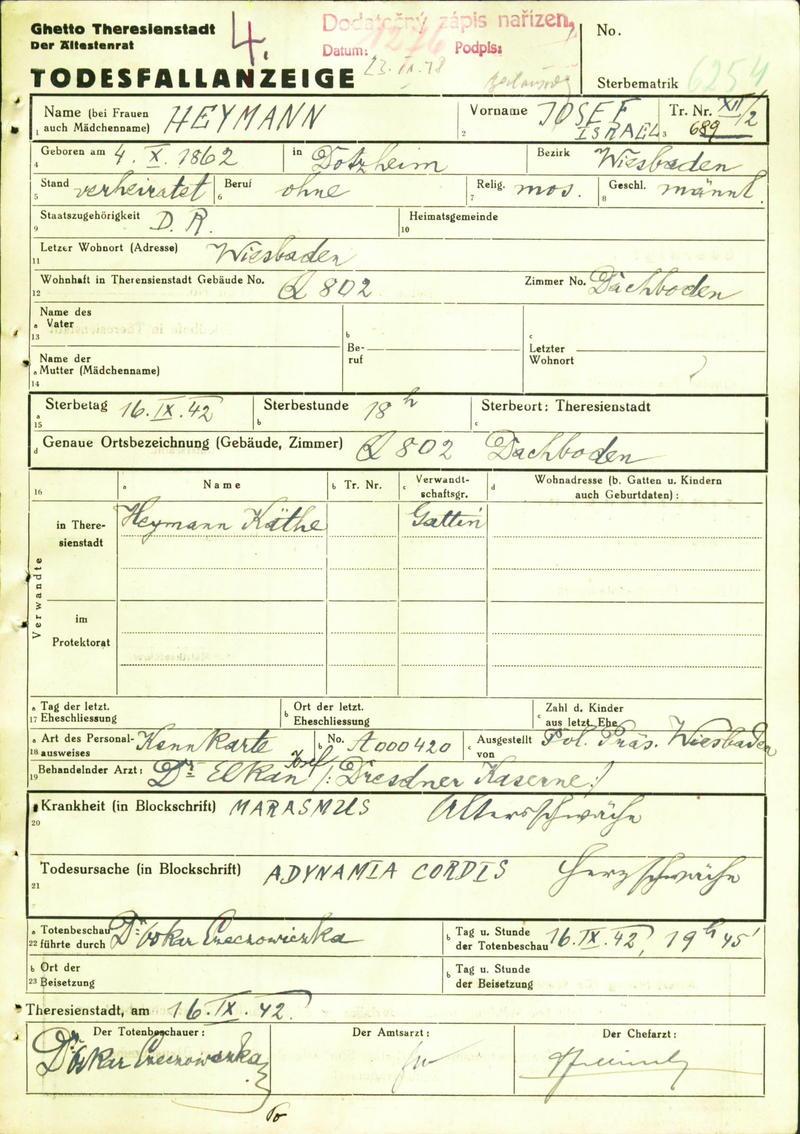 Ghetto Theresienstadt
Der Ältestenrat
TODESFALLANZEIGE
4.
Dodatečný zápis nařízen,
Datum: Podpis:
1276
No.
Sterbematrik 6254
Name (bei Frauen auch Mädchenname) HEYMANN
1
Vorname JOSEF ISRAEL
2
Tr. Nr. XII/2
3 689
Geboren am 4. X. 1862 in Dotzheim Bezirk Wiesbaden
4
Stand verheiratet Beruf ohne Relig. mos. Geschl. männl.
5 6 7 8
Staatszugehörigkeit D. R. Heimatsgemeinde
9 10
Letzer Wohnort (Adresse) Wiesbaden
11
Wohnhaft in Therensienstadt Gebäude No. Q 802 Zimmer No. Dachboden
12
Name des
a Vater
13
b
Be-
ruf
c
Letzter
Wohnort
Name der
a Mutter (Mädchenname)
14
a Sterbetag 16. IX. 42 b Sterbestunde 18 h c Sterbeort: Theresienstadt
15
d Genaue Ortsbezeichnung (Gebäude, Zimmer) Q 802 Dachboden
16 a Name b Tr. Nr. c Verwandt-
schaftsgr. d Wohnadresse (b. Gatten u. Kindern
auch Geburtdaten) :
Verwandte
in There-
sienstadt
Heymann Käthe Gattin
im
Protektorat
a Tag der letzt.
17 Eheschliessung
b Ort der letzt.
Eheschliessung
c Zahl d. Kinder
aus letzt. Ehe
a Art des Personal-
18 ausweises Kennkarte
b No. A000420
c Ausgestellt
von Pol. Präs. Wiesbaden
19 Behandelnder Arzt: Dr Elkan Josef /: Dresdner Kaserne :/
Krankheit (in Blockschrift) MARASMUS Altersschwäche
20
Todesursache (in Blockschrift) ADYNAMIA CORDIS Herzschwäche
21
a Totenbeschau
22 führte durch Dr Oskar Czeczowiczka
b Tag u. Stunde
der Totenbeschau 16. IX. 42, 19 h 45'
b Ort der
23 Beisetzung
b Tag u. Stunde
der Beisetzung
Theresienstadt, am 16. IX. 42.
Der Totenbeschauer: Der Amtsarzt: Der Chefarzt: